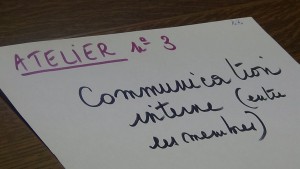 ATELIER n° 3
Communication
interne (entre
les membres)